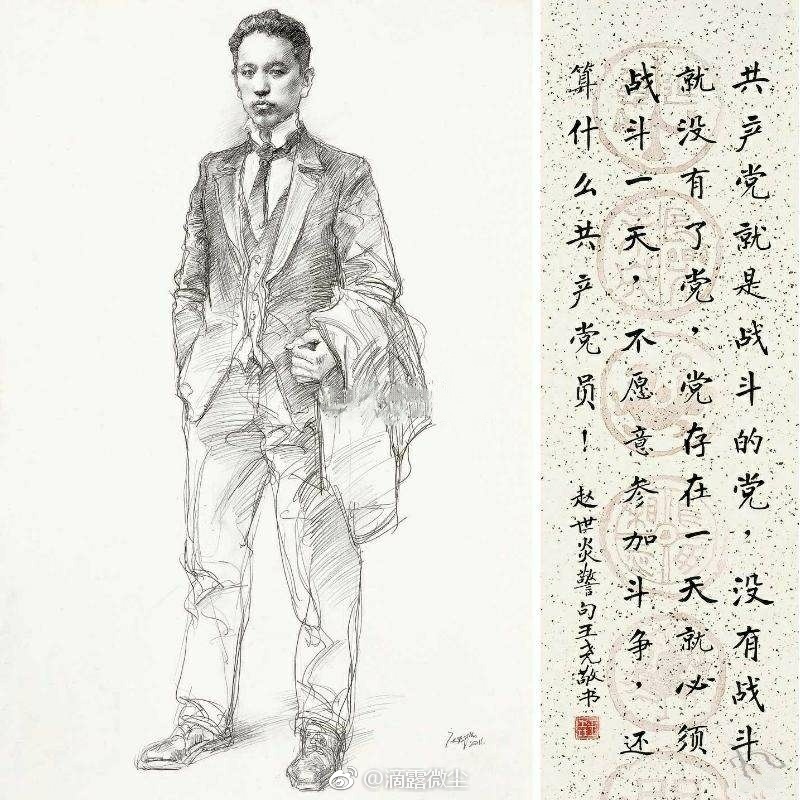 共产党就是战斗的党，没有战斗
就没有了党，党存在一天就必须
战斗一天，不愿意参加斗争，还
算什么共产党员！
赵世炎警句王尧敬书
2011.
@滴露微尘